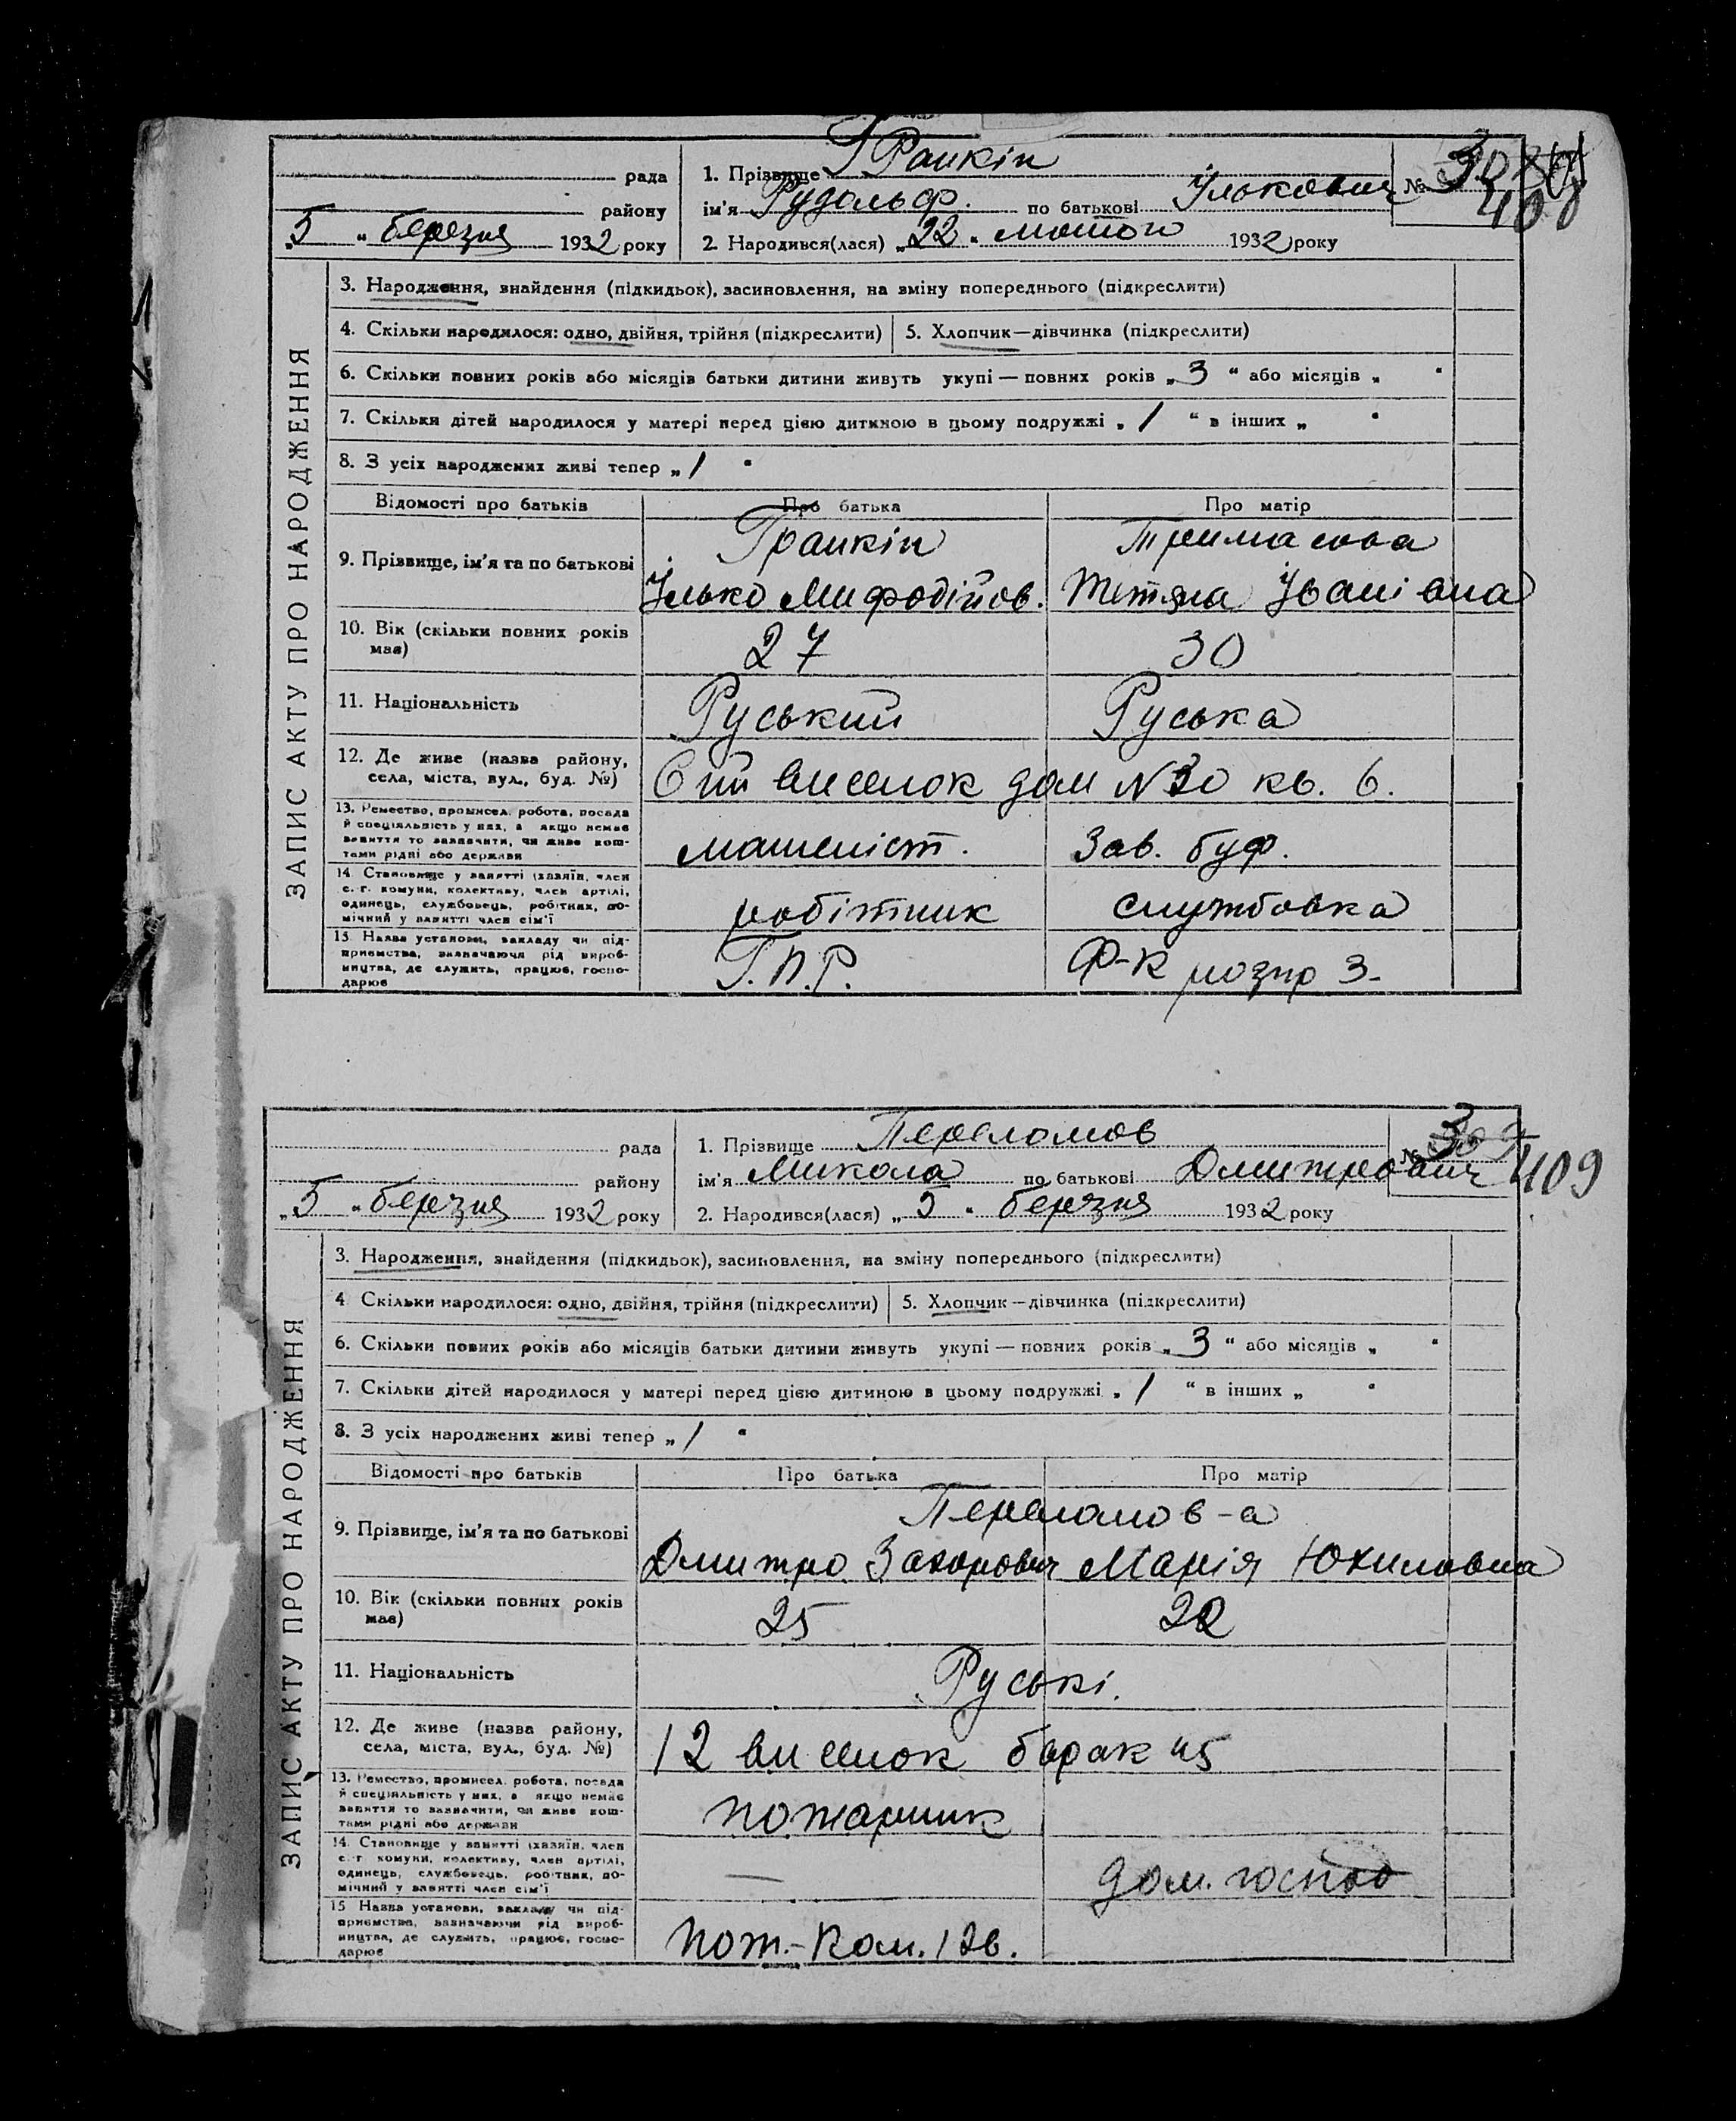 рада
району
„5“ березня 1932 року
1. Прізвище Гранкін
ім'я Рудольф. по батькові Ількович
2. Народився(лася) „22“ лютого 1932 року
№ 408
ЗАПИС АКТУ ПРО НАРОДЖЕННЯ
3. Народження, знайдення (підкидьок), засиновлення, на зміну попереднього (підкреслити)
4. Скільки народилося: одно, двійня, трійня (підкреслити) 5. Хлопчик—дівчинка (підкреслити)
6. Скільки повних років або місяців батьки дитини живуть укупі — повних років „3“ або місяців „ “
7. Скільки дітей народилося у матері перед цією дитиною в цьому подружжі „1“ в інших „ “
8. З усіх народжених живі тепер „1“
Відомості про батьків Про батька Про матір
9. Прізвище, ім'я та по батькові
Гранкін
Ілько Мифодійов. Тетяна Іванівна
10. Вік (скільки повних років має) 27 30
11. Національність Руський Руська
12. Де живе (назва району, села, міста, вул., буд. №) 6 ий виселок дом № 30 кв. 6.
13. Ремество, промисел, робота, посада й спеціяльність у них, а якщо немає заняття то зазначити, чи живе коштами рідні або держави машиніст. Зав. буф.
14. Становище у занятті (хазяїн, член с.-г. комуни, колективу, член артілі, одинець, службовець, робітник, помічний у занятті член сім'ї робітник службовка
15. Назва установи, закладу чи підприємства, зазначаючи рід виробництва, де служить, працює, господарює Г.П.Р. Ф-к розпр 3-
рада
району
„5“ березня 1932 року
1. Прізвище Переломов
ім'я Микола по батькові Дмитрович
2. Народився(лася) „5“ березня 1932 року
№ 409
ЗАПИС АКТУ ПРО НАРОДЖЕННЯ
3. Народження, знайдення (підкидьок), засиновлення, на зміну попереднього (підкреслити)
4. Скільки народилося: одно, двійня, трійня (підкреслити) 5. Хлопчик—дівчинка (підкреслити)
6. Скільки повних років або місяців батьки дитини живуть укупі — повних років „3“ або місяців „ “
7. Скільки дітей народилося у матері перед цією дитиною в цьому подружжі „1“ в інших „ “
8. З усіх народжених живі тепер „1“
Відомості про батьків Про батька Про матір
9. Прізвище, ім'я та по батькові
Переломов-а
Дмитро Захарович Марія Юхиловна
10. Вік (скільки повних років має) 25 22
11. Національність Руські.
12. Де живе (назва району, села, міста, вул., буд. №) 12 виселок барак 45
13. Ремество, промисел, робота, посада й спеціяльність у них, а якщо немає заняття то зазначити, чи живе коштами рідні або держави пожарник
14. Становище у занятті (хазяїн, член с.-г. комуни, колективу, член артілі, одинець, службовець, робітник, помічний у занятті член сім'ї — дом. господ
15. Назва установи, закладу чи підприємства, зазначаючи рід виробництва, де служить, працює, господарює Пож.-Ком. 12в.